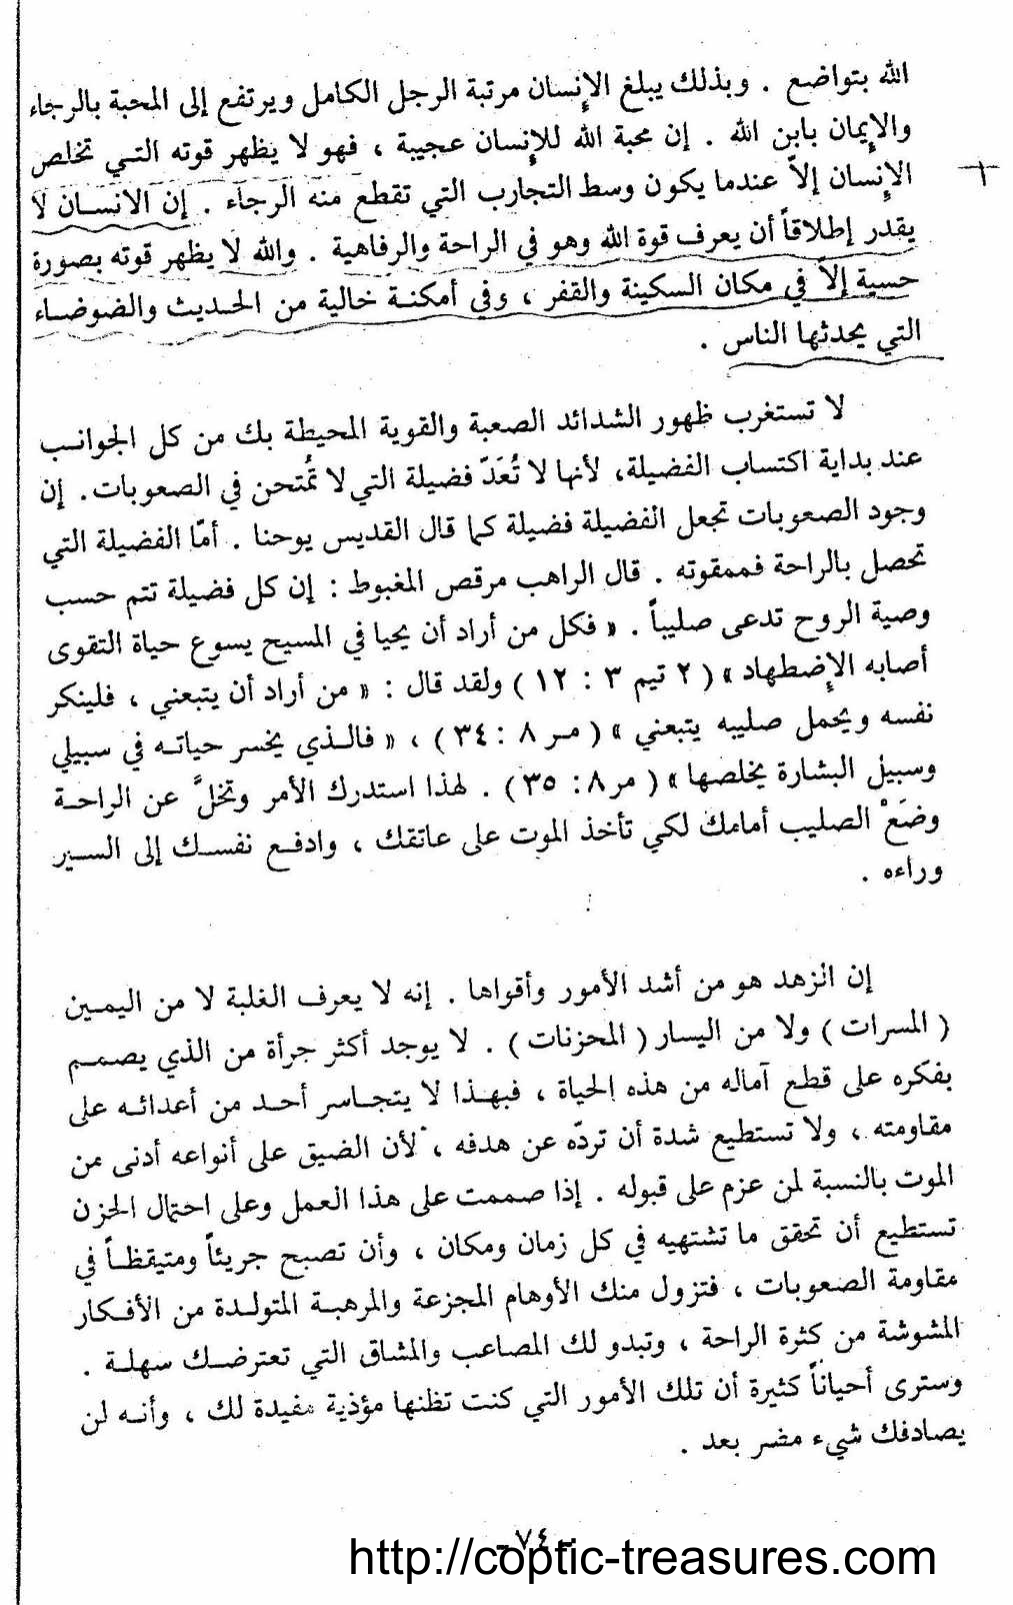 الله بتواضع . وبذلك يبلغ الإنسان مرتبة الرجل الكامل ويرتفع إلى المحبة بالرجاء
والإيمان بابن الله . إن محبة الله للإنسان عجيبة ، فهو لا يظهر قوته التي تخلص
الإنسان إلاّ عندما يكون وسط التجارب التي تقطع منه الرجاء . إن الانسان لا
يقدر إطلاقاً أن يعرف قوة الله وهو في الراحة والرفاهية . والله لا يظهر قوته بصورة
حسية إلاّ في مكان السكينة والقفر ، وفي أمكنة خالية من الحديث والضوضاء
التي يحدثها الناس .
لا تستغرب ظهور الشدائد الصعبة والقوية المحيطة بك من كل الجوانب
عند بداية اكتساب الفضيلة، لأنها لا تُعَدّ فضيلة التي لا تُمتحن في الصعوبات. إن
وجود الصعوبات تجعل الفضيلة فضيلة كما قال القديس يوحنا . أمّا الفضيلة التي
تحصل بالراحة فممقوته . قال الراهب مرقص المغبوط : إن كل فضيلة تتم حسب
وصية الروح تدعى صليباً . « فكل من أراد أن يحيا في المسيح يسوع حياة التقوى
أصابه الإضطهاد » ( ٢ تيم ٣ : ١٢ ) ولقد قال : « من أراد أن يتبعني ، فلينكر
نفسه ويحمل صليبه يتبعني » ( مر ٨ : ٣٤ ) ، « فالذي يخسر حياته في سبيلي
وسبيل البشارة يخلصها » ( مر ٨ : ٣٥ ) . لهذا استدرك الأمر وتخلَّ عن الراحة
وضَعْ الصليب أمامك لكي تأخذ الموت على عاتقك ، وادفع نفسك إلى السير
وراءه .
إن الزهد هو من أشد الأمور وأقواها . إنه لا يعرف الغلبة لا من اليمين
( المسرات ) ولا من اليسار ( المحزنات ) . لا يوجد أكثر جرأة من الذي يصمم
بفكره على قطع آماله من هذه الحياة ، فبهذا لا يتجاسر أحد من أعدائه على
مقاومته ، ولا تستطيع شدة أن تردّه عن هدفه ، لأن الضيق على أنواعه أدنى من
الموت بالنسبة لمن عزم على قبوله . إذا صممت على هذا العمل وعلى احتمال الحزن
تستطيع أن تحقق ما تشتهيه في كل زمان ومكان ، وأن تصبح جريئاً ومتيقظاً في
مقاومة الصعوبات ، فتزول منك الأوهام المجزعة والمرهبة المتولدة من الأفكار
المشوشة من كثرة الراحة ، وتبدو لك المصاعب والمشاق التي تعترضك سهلة .
وسترى أحياناً كثيرة أن تلك الأمور التي كنت تظنها مؤذية مفيدة لك ، وأنه لن
يصادفك شيء مضر بعد .
- ٧٤ -
http://coptic-treasures.com